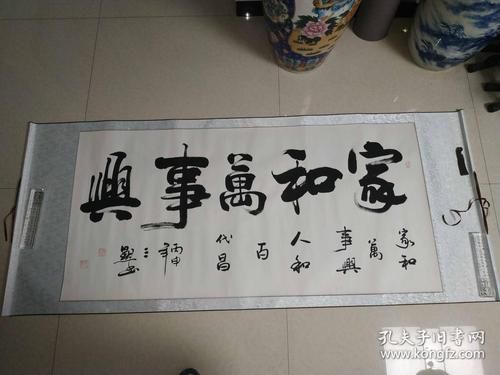 家和萬事興
家和
萬
事興
人和
百
代昌
丙申
孔夫子旧书网
www.kongfz.com